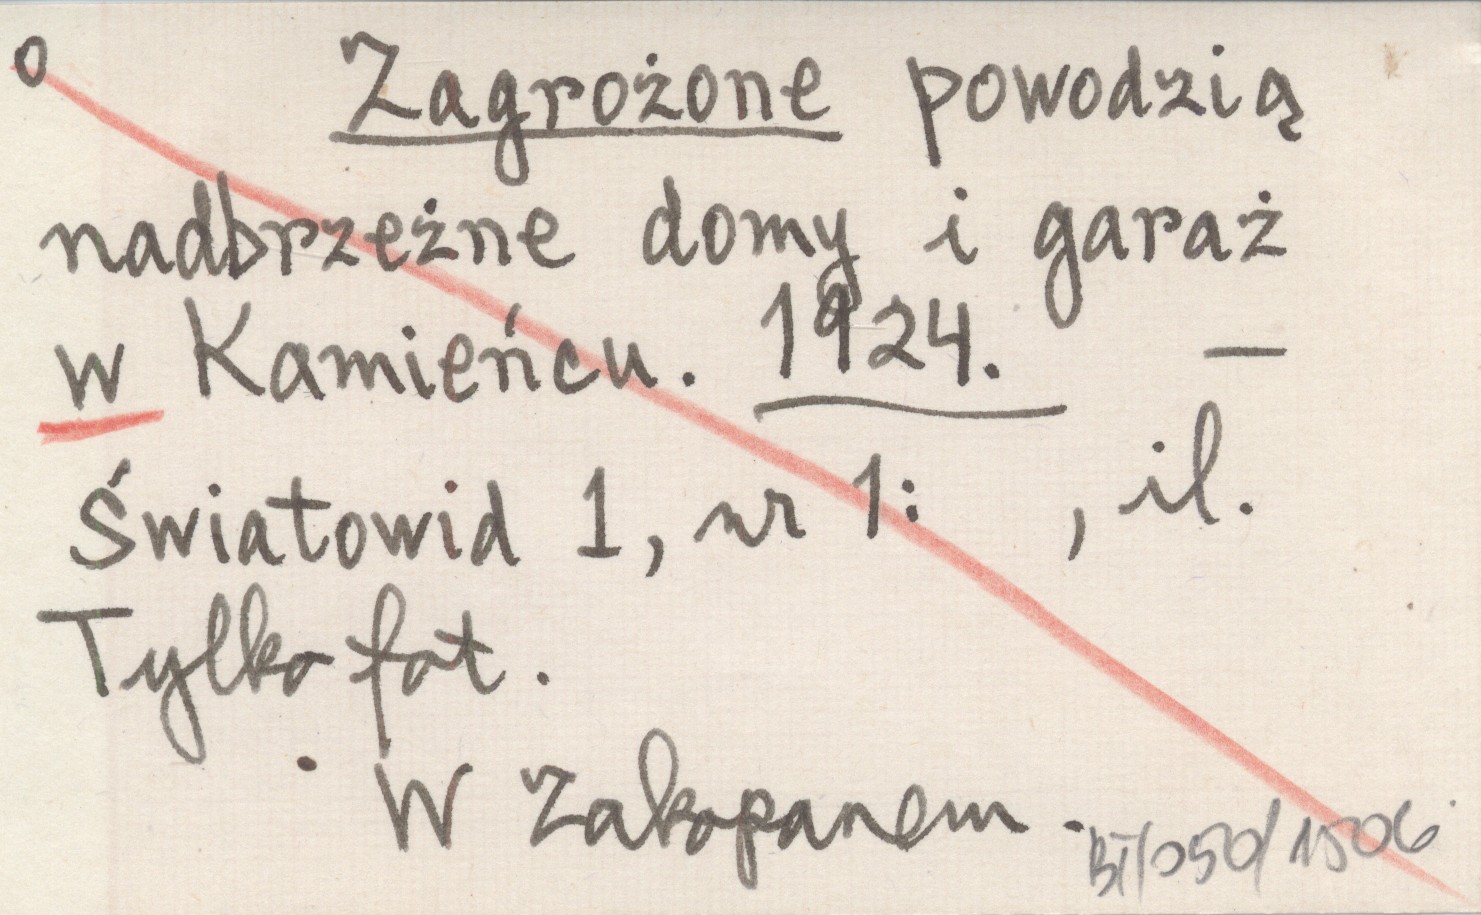 o Zagrożone powodzią
nadbrzeżne domy i garaż
w Kamieńcu. 1924. —
Światowid 1, nr 1: , il.
Tylko fot.
W Zakopanem.
BT/050/1506